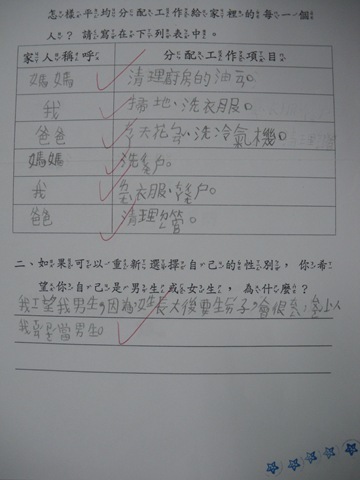 怎樣平均分配工作給家裡的每一個
人？請寫在下列表中。
家人稱呼 分配工作項目
媽媽 清理廚房的油
我 掃地、洗衣服。
爸爸 天花 、洗冷氣機。
媽媽 洗 戶。
我 衣服、 戶。
爸爸 清理
二、如果可以重新選擇自己的性別，你希
望你自己是男生或女生，為什麼？
我 望我男生，因為 長大後要生 子，會很
我 當男生。